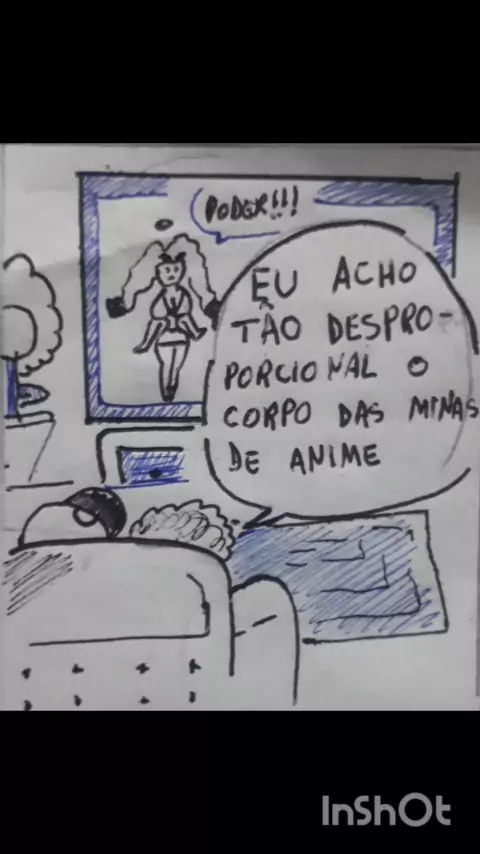 PODER!!!
EU ACHO
TÃO DESPRO-
PORCIONAL O
CORPO DAS MINAS
DE ANIME
InShOt